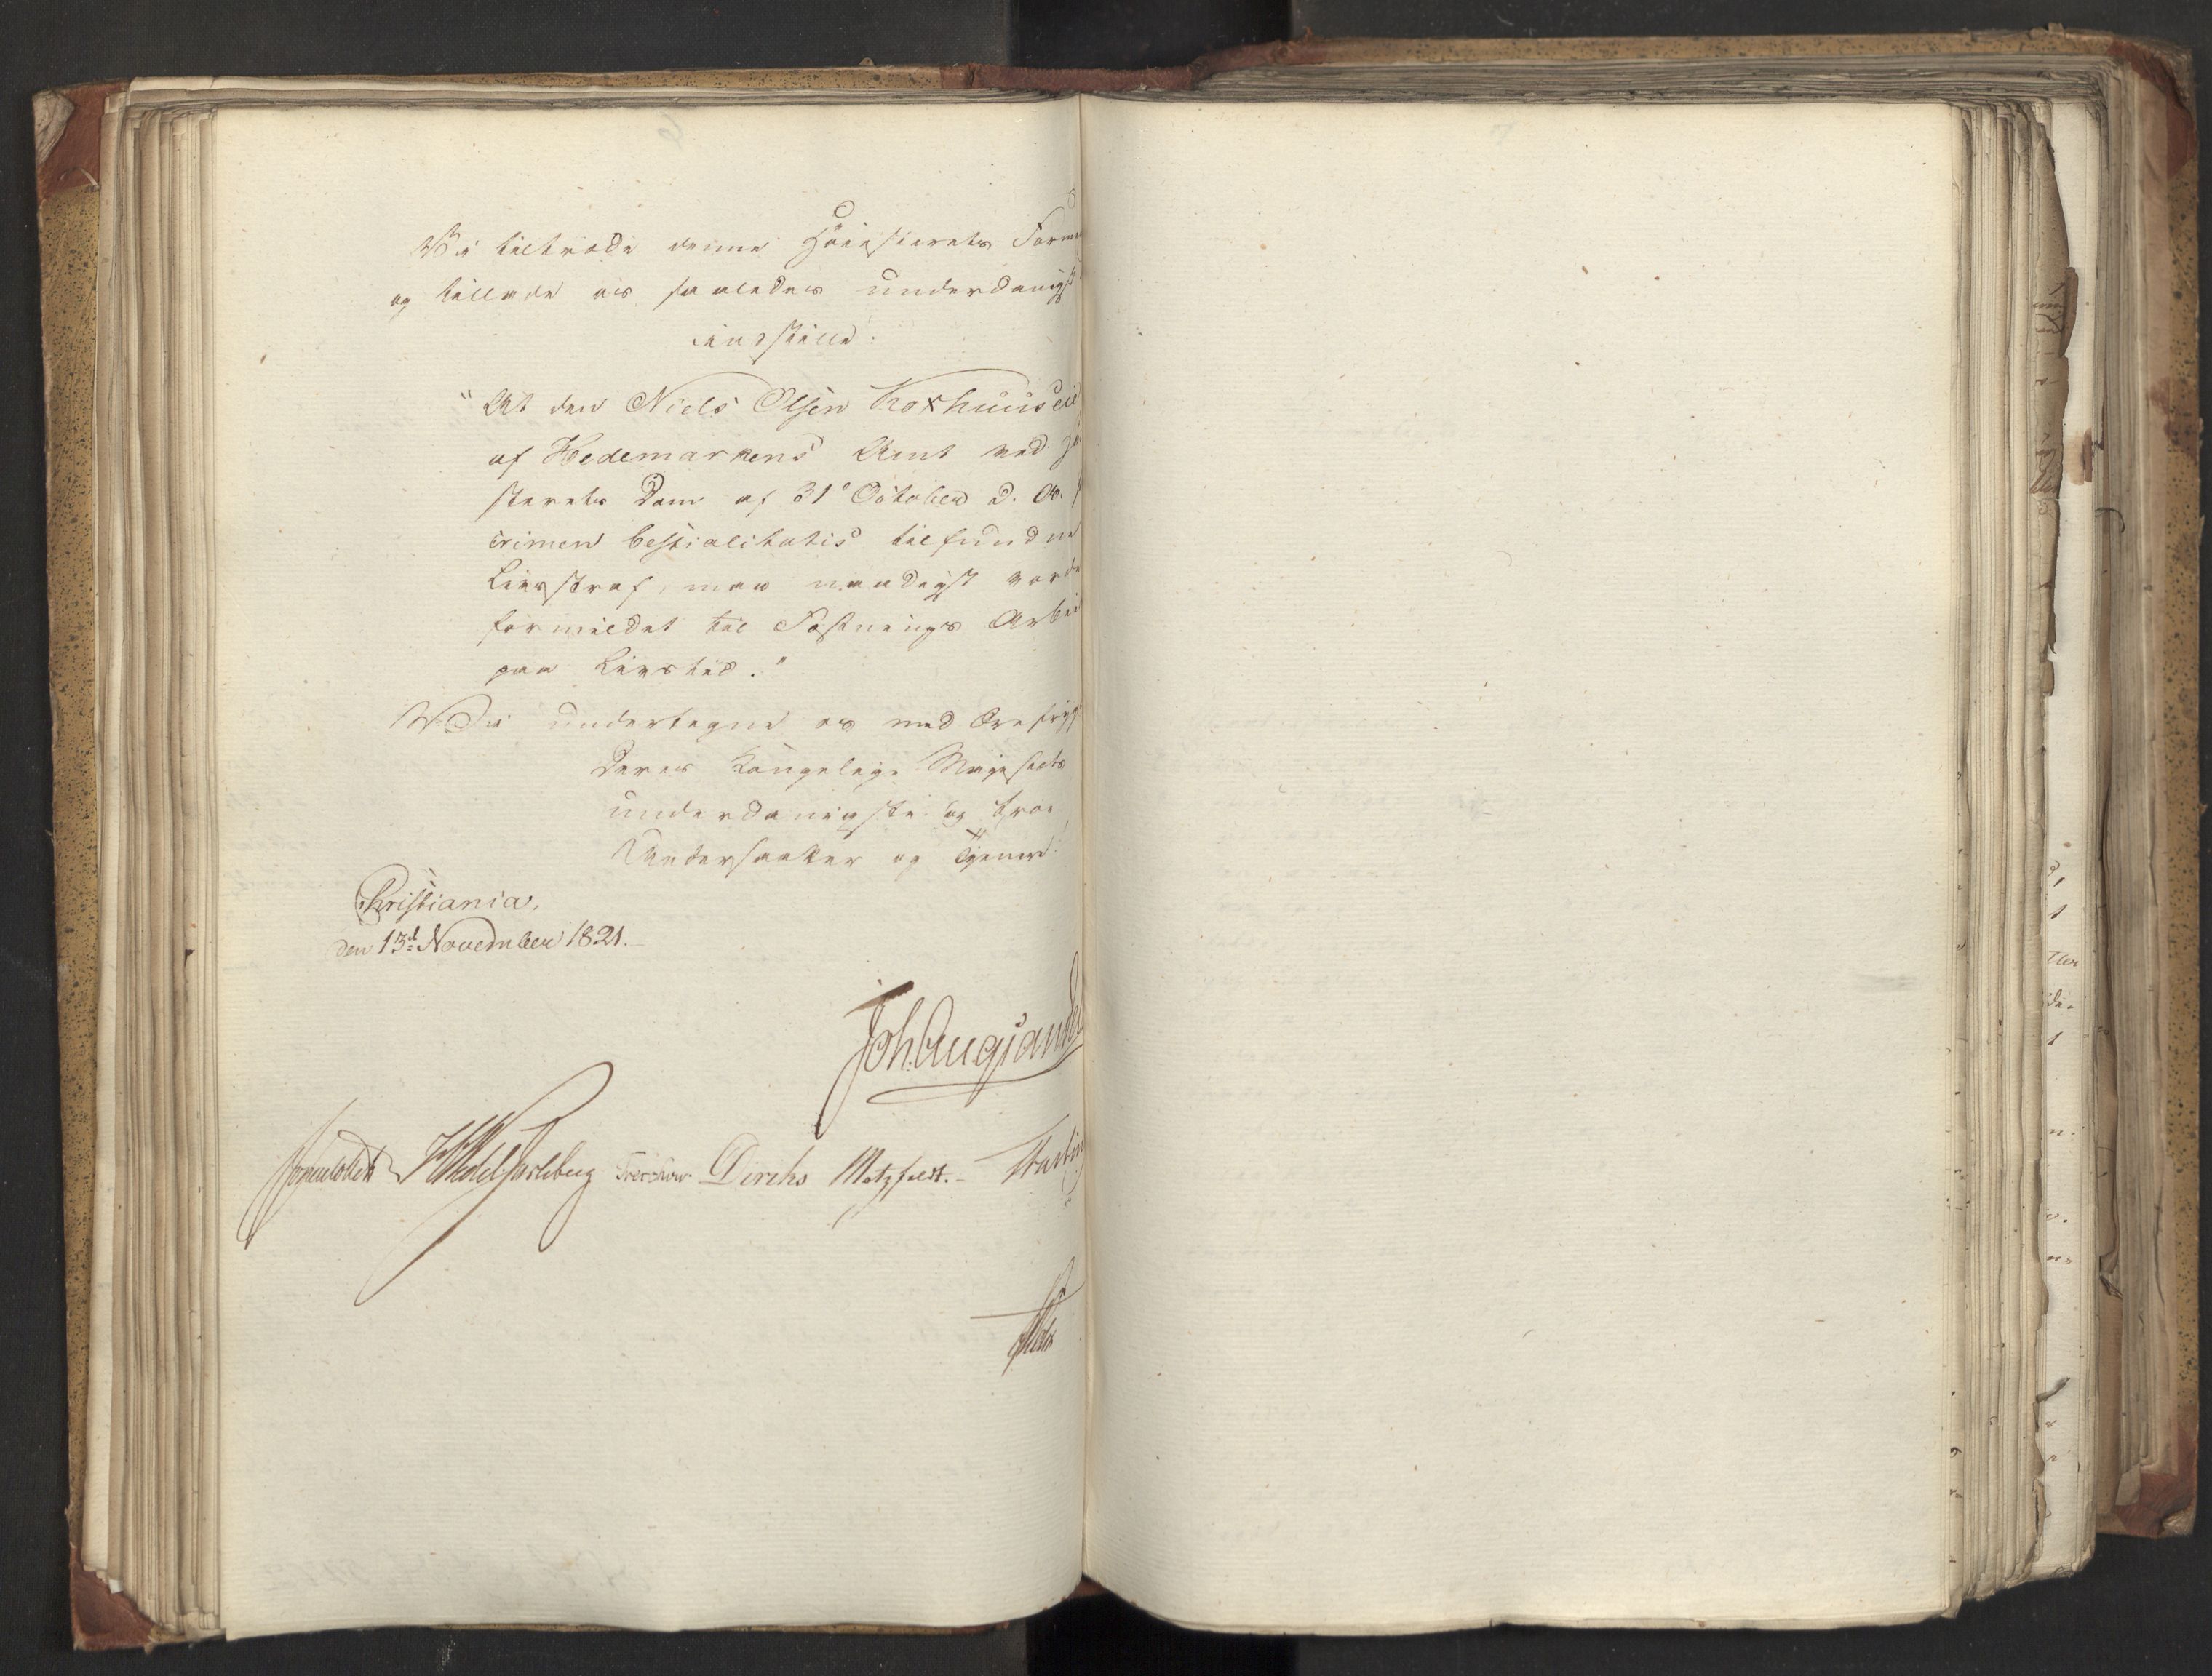 Vi tiltræde denne Høiesterets Form
og tillade os saaledes underdanigst
indstille:
"At den Niels Olsen Koxhuuseie
af Hedemarkens Amt ved Høi
sterets Dom af 31te October d. A. f
crimen bestialitatis tilfundne
Livsstraf, maa naadigst vorde
formildet til Fæstnings Arbei
paa Livstid."
Vi undertegne os med Ærefrygt
Deres Kongelige Majestæts
underdanigste og troe
Undersaatter og Tjenere
Christiania,
den 13d November 1821.
Joh. Aug: Sandels
Sommerhielm HWedelJarlsberg Treschow Diriks Motzfeldt.